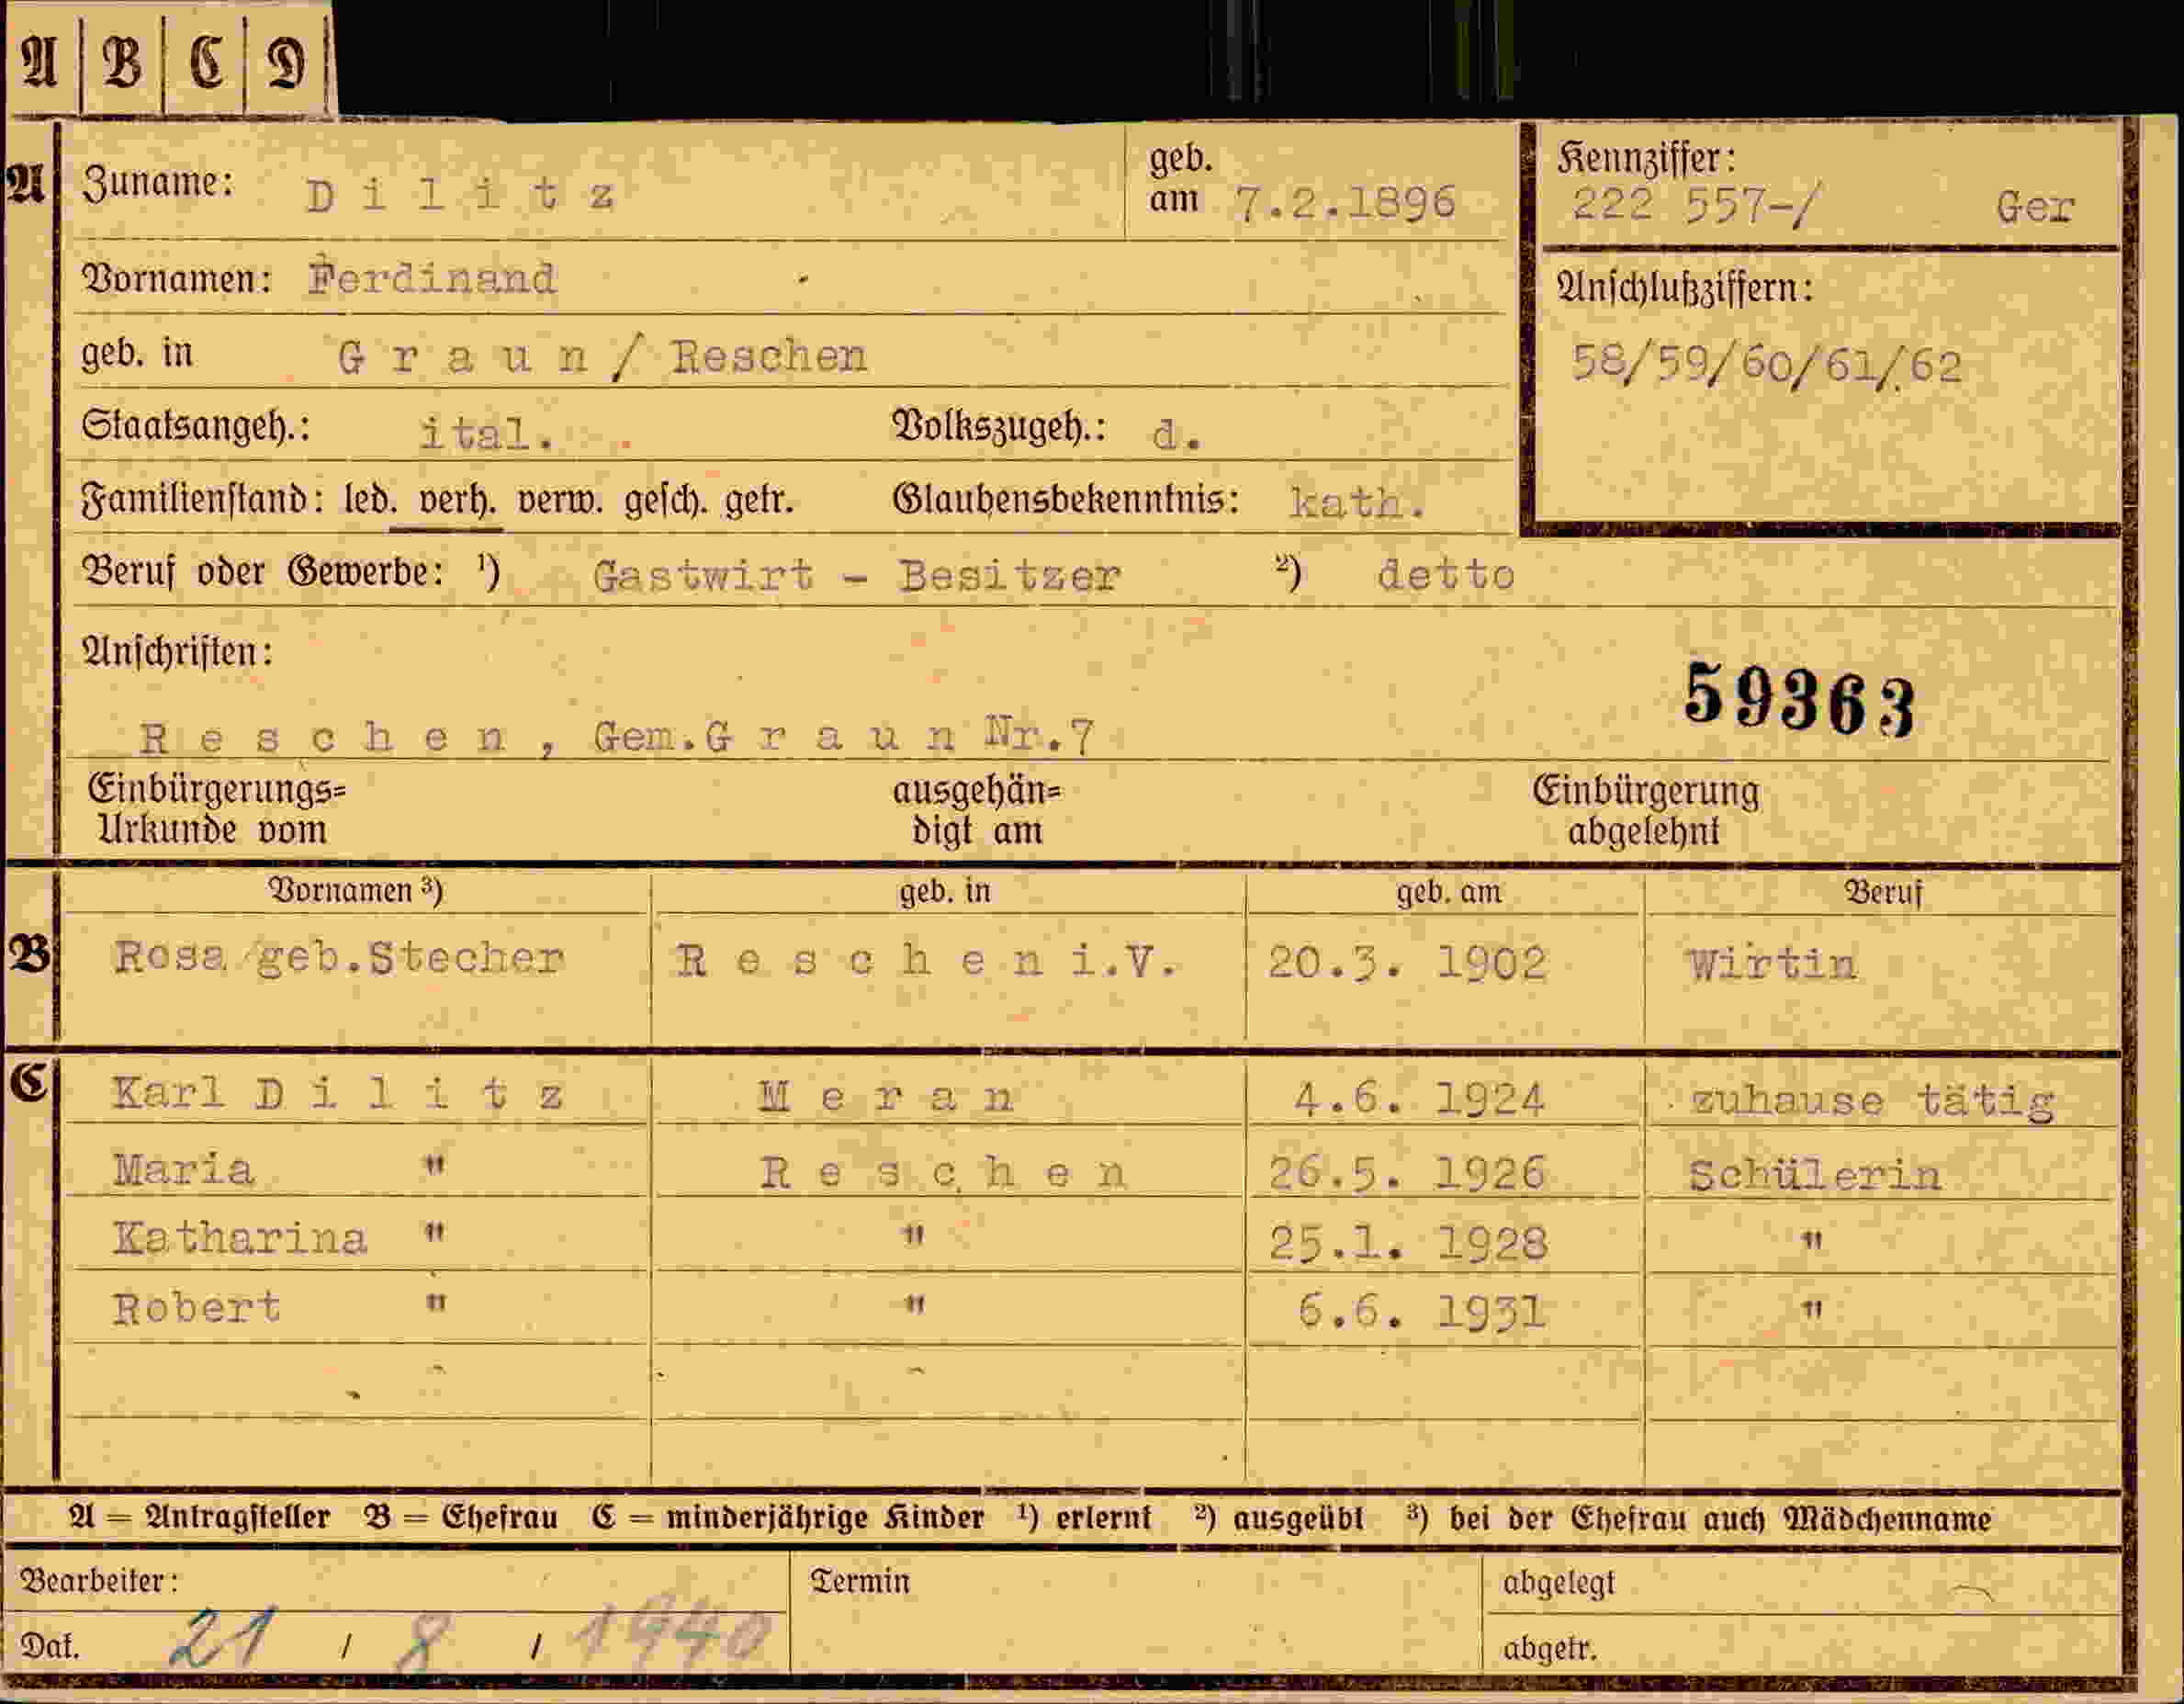 A B C D
A Zuname: Dilitz geb. am 7.2.1896 Kennziffer: 222 557-/ Ger
Vornamen: Ferdinand Anschlußziffern:
geb. in Graun/Reschen 58/59/60/61/62
Staatsangeh.: ital. Volkszugeh.: d.
Familienstand: led. verh. verw. gesch. getr. Glaubensbekenntnis: kath.
Beruf oder Gewerbe: ¹) Gastwirt - Besitzer ²) detto
Anschriften:
59363
Reschen, Gem.Graun Nr.7
Einbürgerungs= ausgehän= Einbürgerung
Urkunde vom digt am abgelehnt
Vornamen ³) geb. in geb. am Beruf
B Rosa geb.Stecher Reschen i.V. 20.3. 1902 Wirtin
C Karl Dilitz Meran 4.6. 1924 zuhause tätig
Maria " Reschen 26.5. 1926 Schülerin
Katharina " " 25.1. 1928 "
Robert " " 6.6. 1931 "
A = Antragsteller B = Ehefrau C = minderjährige Kinder ¹) erlernt ²) ausgeübt ³) bei der Ehefrau auch Mädchenname
Bearbeiter: Termin abgelegt
Dat. 21 / 8 / 1940 abgetr.